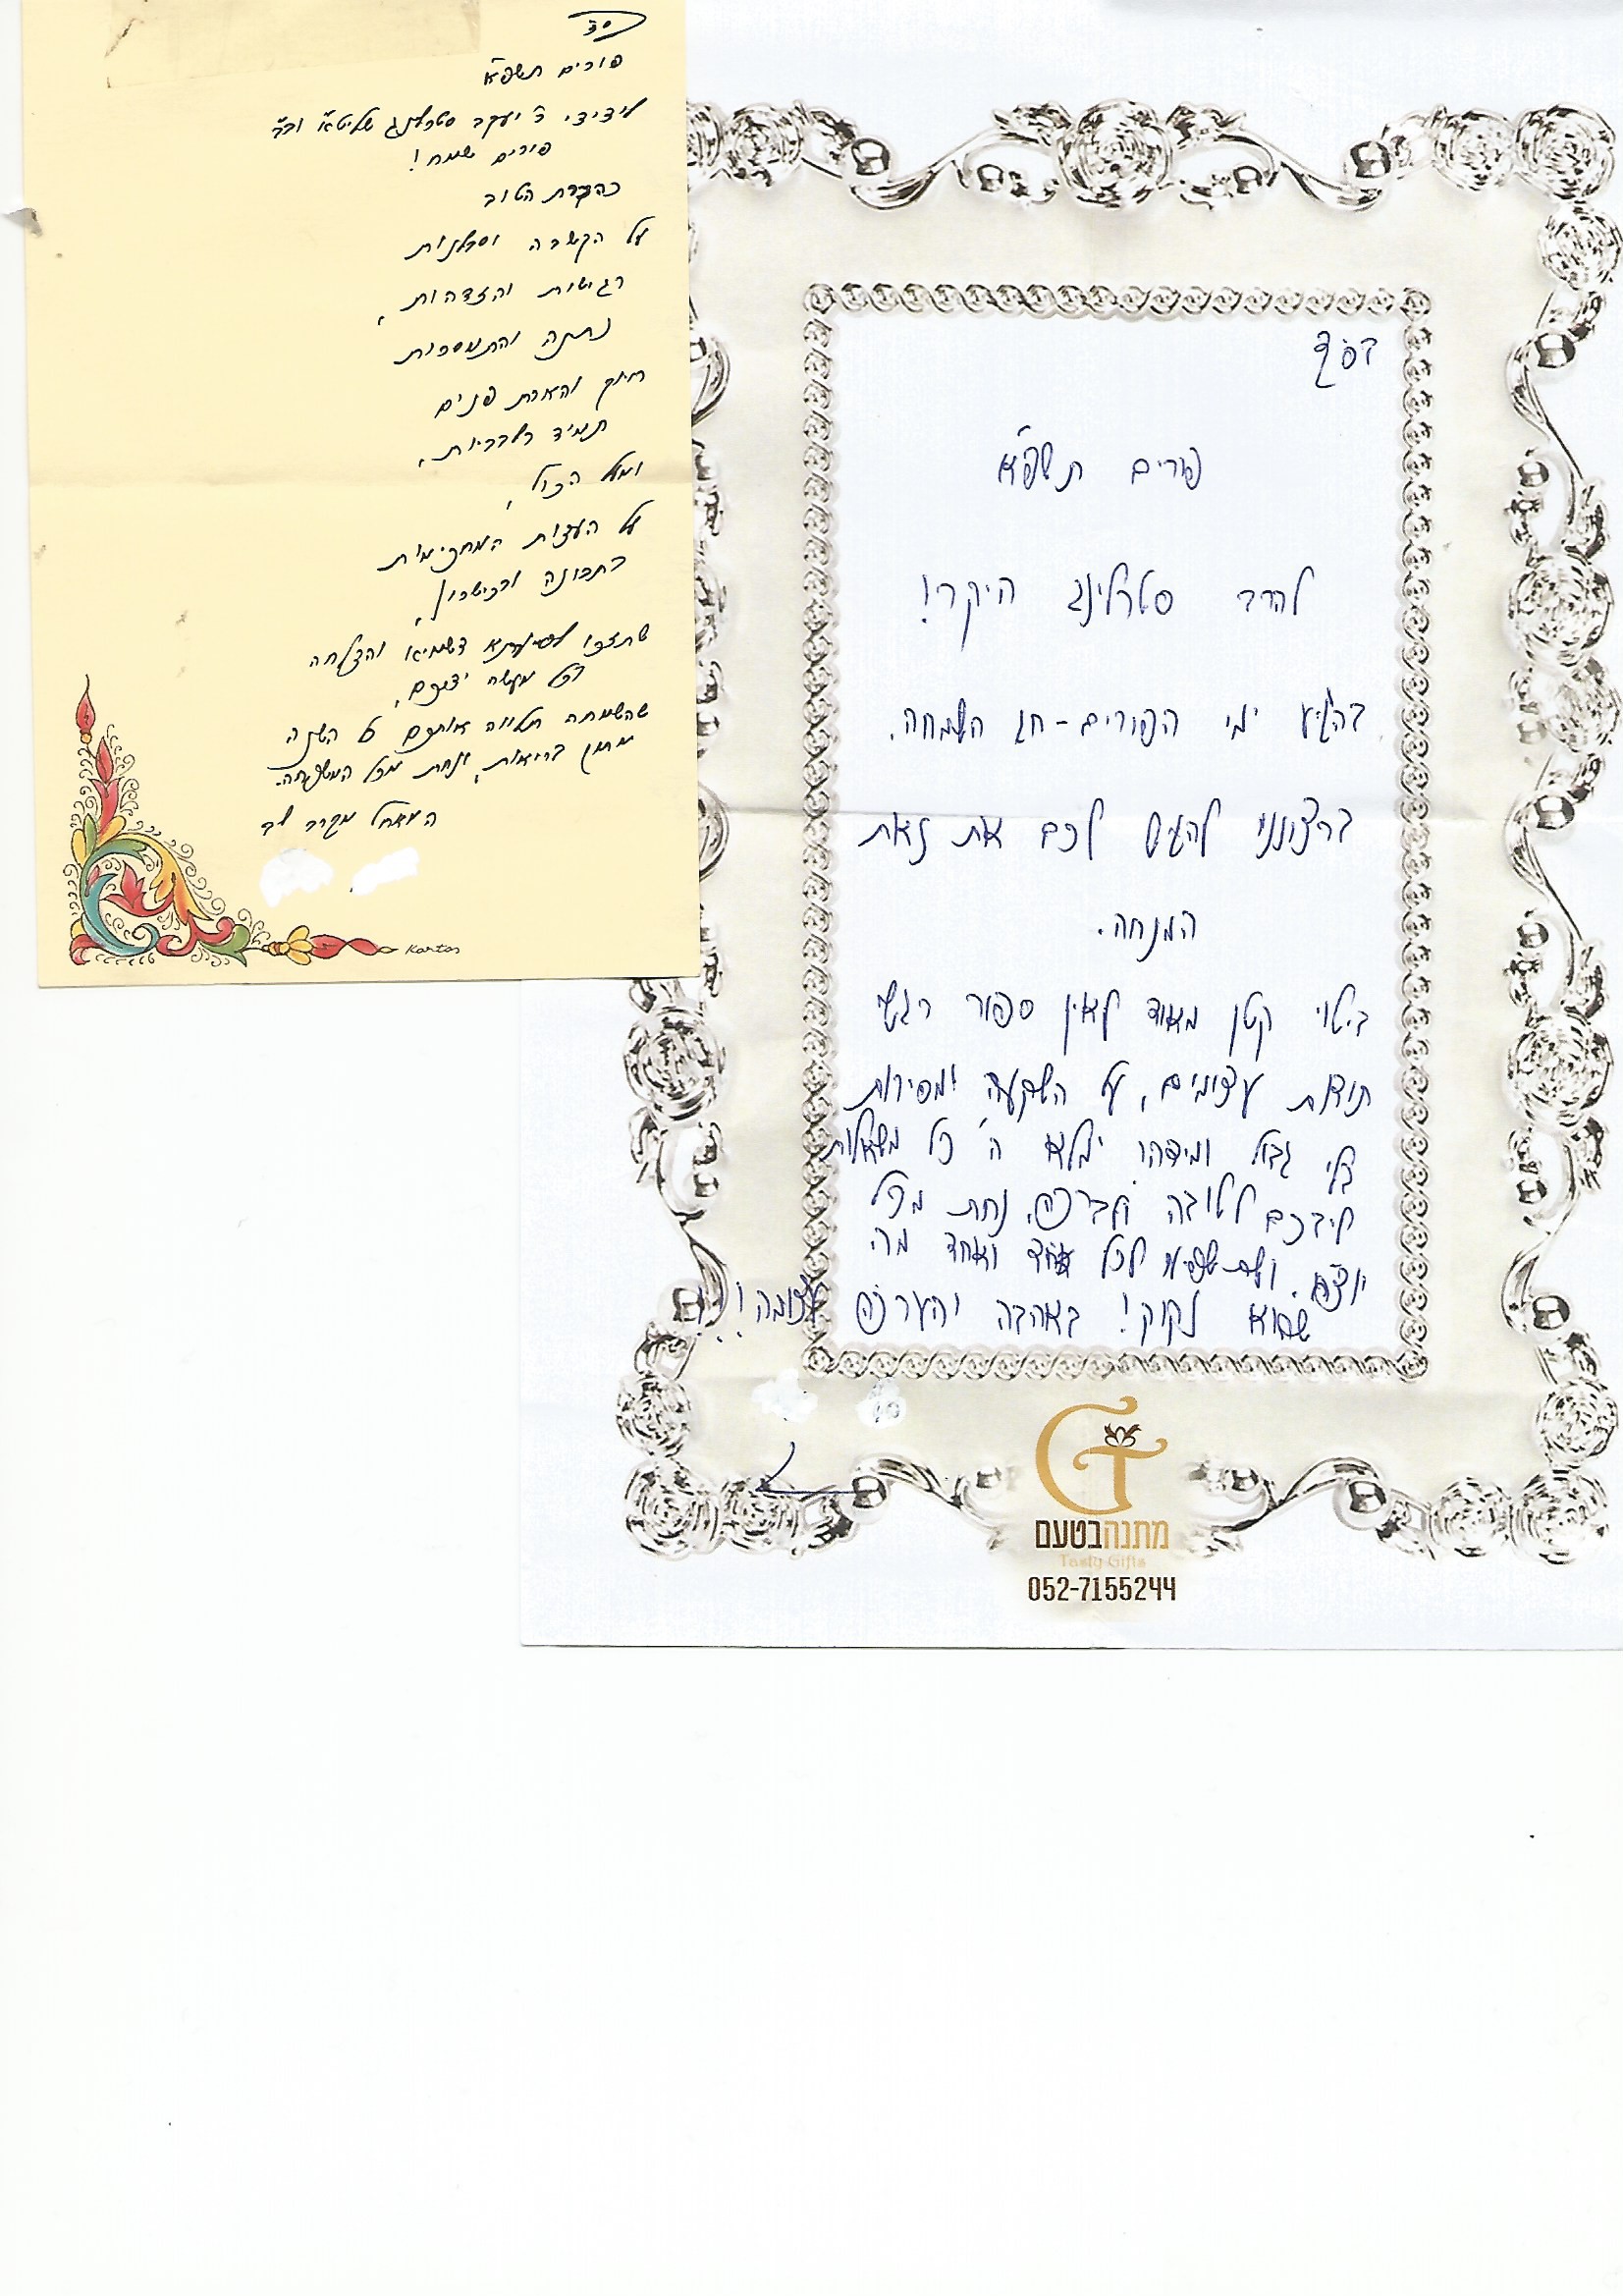 בס"ד
פורים תשפ"א
לידידי ר' יעקב סטרלינג שליט"א וב"ב
פורים שמח!
בהכרת הטוב
על הקשבה וסבלנות
רגישות והזדהות,
נתינה והתמסרות
חיוך והארת פנים
תמיד בלבביות,
ומעל הכול,
על העצות המחכימות
בתבונה ובכישרון,
שתזכו לסייעתא דשמיא והצלחה
בכל מעשה ידיכם,
שהשמחה תלווה אתכם כל השנה
מתוך בריאות, ונחת מכל המשפחה.
המאחל מקרב לב
Kartos
בס"ד
פורים תשפ"א
להרב סטרלינג היקר!
בהגיע ימי הפורים - חג השמחה.
ברצונני להגיש לכם את זאת
המנחה.
ביטוי קטן מאוד לאין ספור רגשי
תודות עצומים, על השקעה ומסירות
בלי גבול ומידהו ימלא ה' כל משאלות
ליבכם לטובה ולברכה. נחת מכל
יוצ"ח. ושתשפיע לכל אחד ואחד מה
שהוא זקוק! באהבה והערכה עצומה!!!
מתנהבטעם
Tasty Gifts
052-7155244